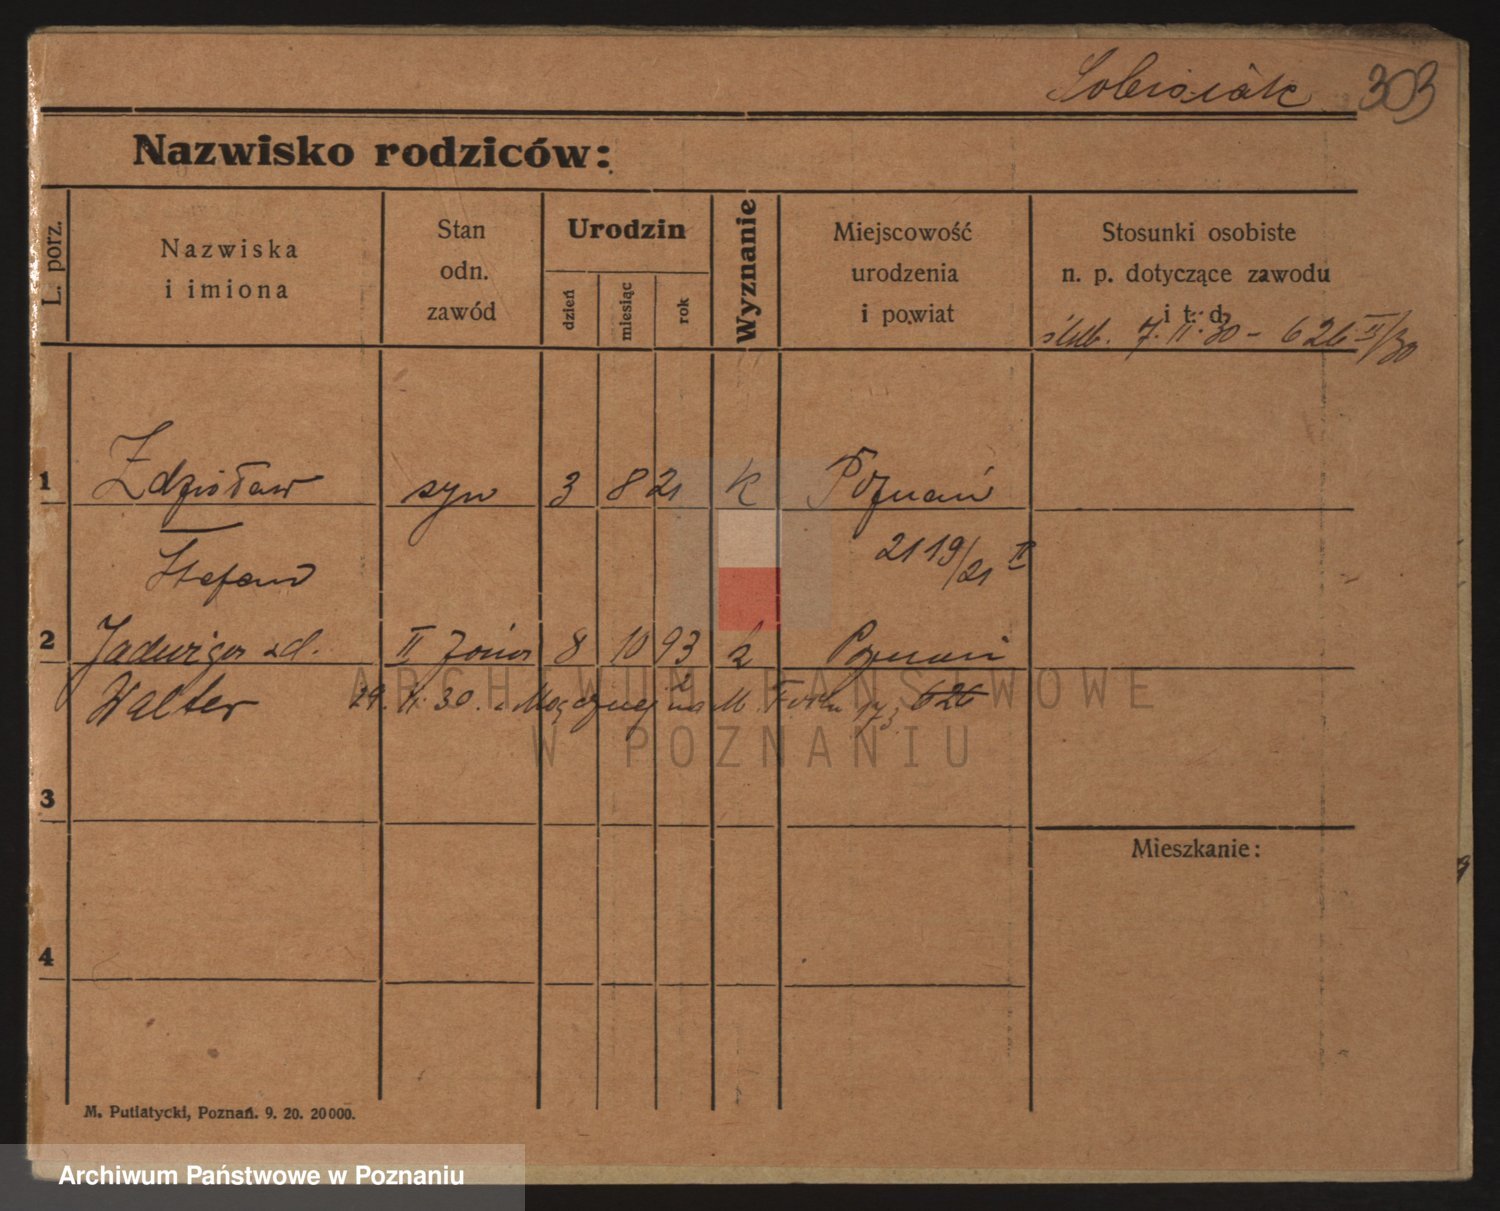 Sobisiak 303
Nazwisko rodziców:
L. porz.
Nazwiska
i imiona
Stan
odn.
zawód
Urodzin
dzień
miesiąc
rok
Wyznanie
Miejscowość
urodzenia
i powiat
Stosunki osobiste
n. p. dotyczące zawodu
i t. d.
ślub. 7. II. 30 - 626 II/30
1 Zdzisław syn 3 8 21 k Poznań
2119/21 II
Stefan
2 Jadwiga zd. II żona 8 10 93 k Poznań
Walter 29. 30. M. 173 626
ARCHIWUM PAŃSTWOWE
W POZNANIU
3
Mieszkanie:
4
M. Putiatycki, Poznań. 9. 20. 20000.
Archiwum Państwowe w Poznaniu